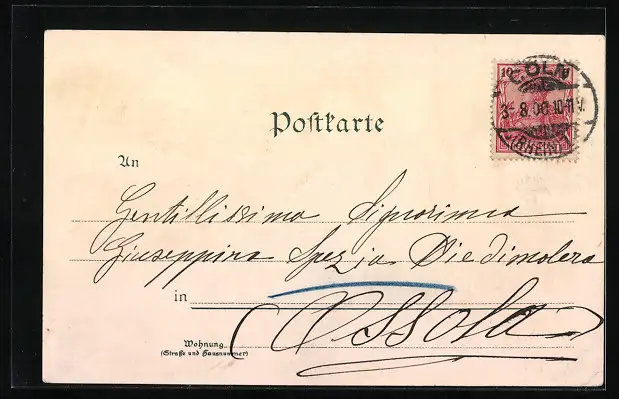 10
CÖLN
3-8.00.10-11V.
(RHEIN)
Postkarte
An
Gentillissima Signorina
Giuseppina Spezia Piedimulera
in
Ossola
Wohnung
(Straße und Hausnummer)